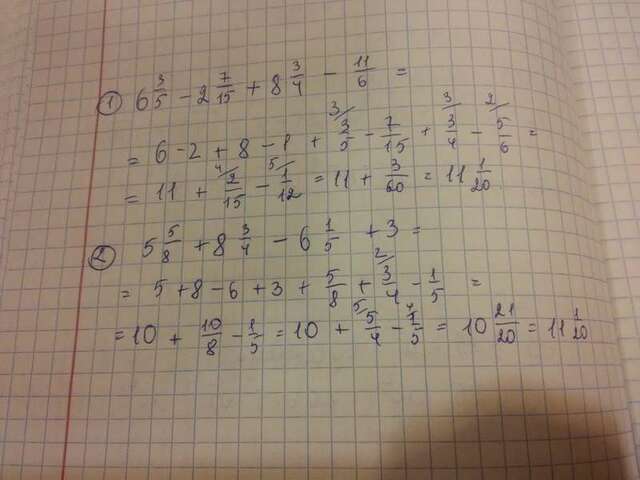 ① 6 3/5 - 2 7/15 + 8 3/4 - 11/6 =
= 6 - 2 + 8 - 1 + 3/ 3/5 - 7/15 + 3/ 3/4 - 2/ 5/6 =
= 11 + 4/ 2/15 - 5/ 1/12 = 11 + 3/60 = 11 1/20
② 5 5/8 + 8 3/4 - 6 1/5 + 3 =
= 5 + 8 - 6 + 3 + 5/8 + 2/ 3/4 - 1/5 =
= 10 + 10/8 - 1/5 = 10 + 5/ 5/4 - 4/ 1/5 = 10 21/20 = 11 1/20